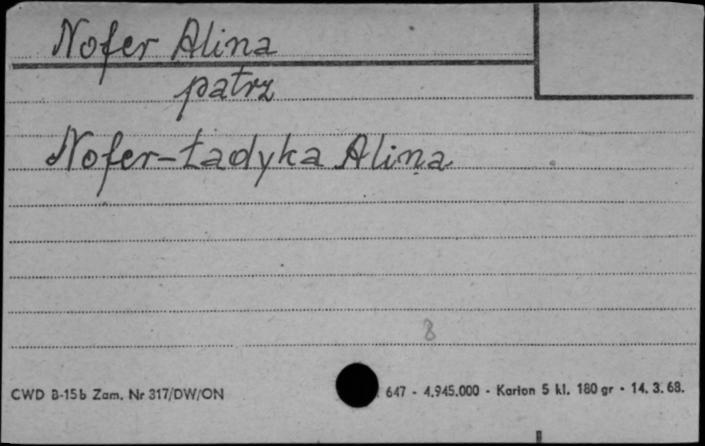 Nofer Alina
patrz
Nofer-Ładyka Alina
8
CWD B-15b Zam. Nr 317/DW/ON 647 - 4.945.000 - Karton 5 kl. 180 gr - 14. 3. 68.